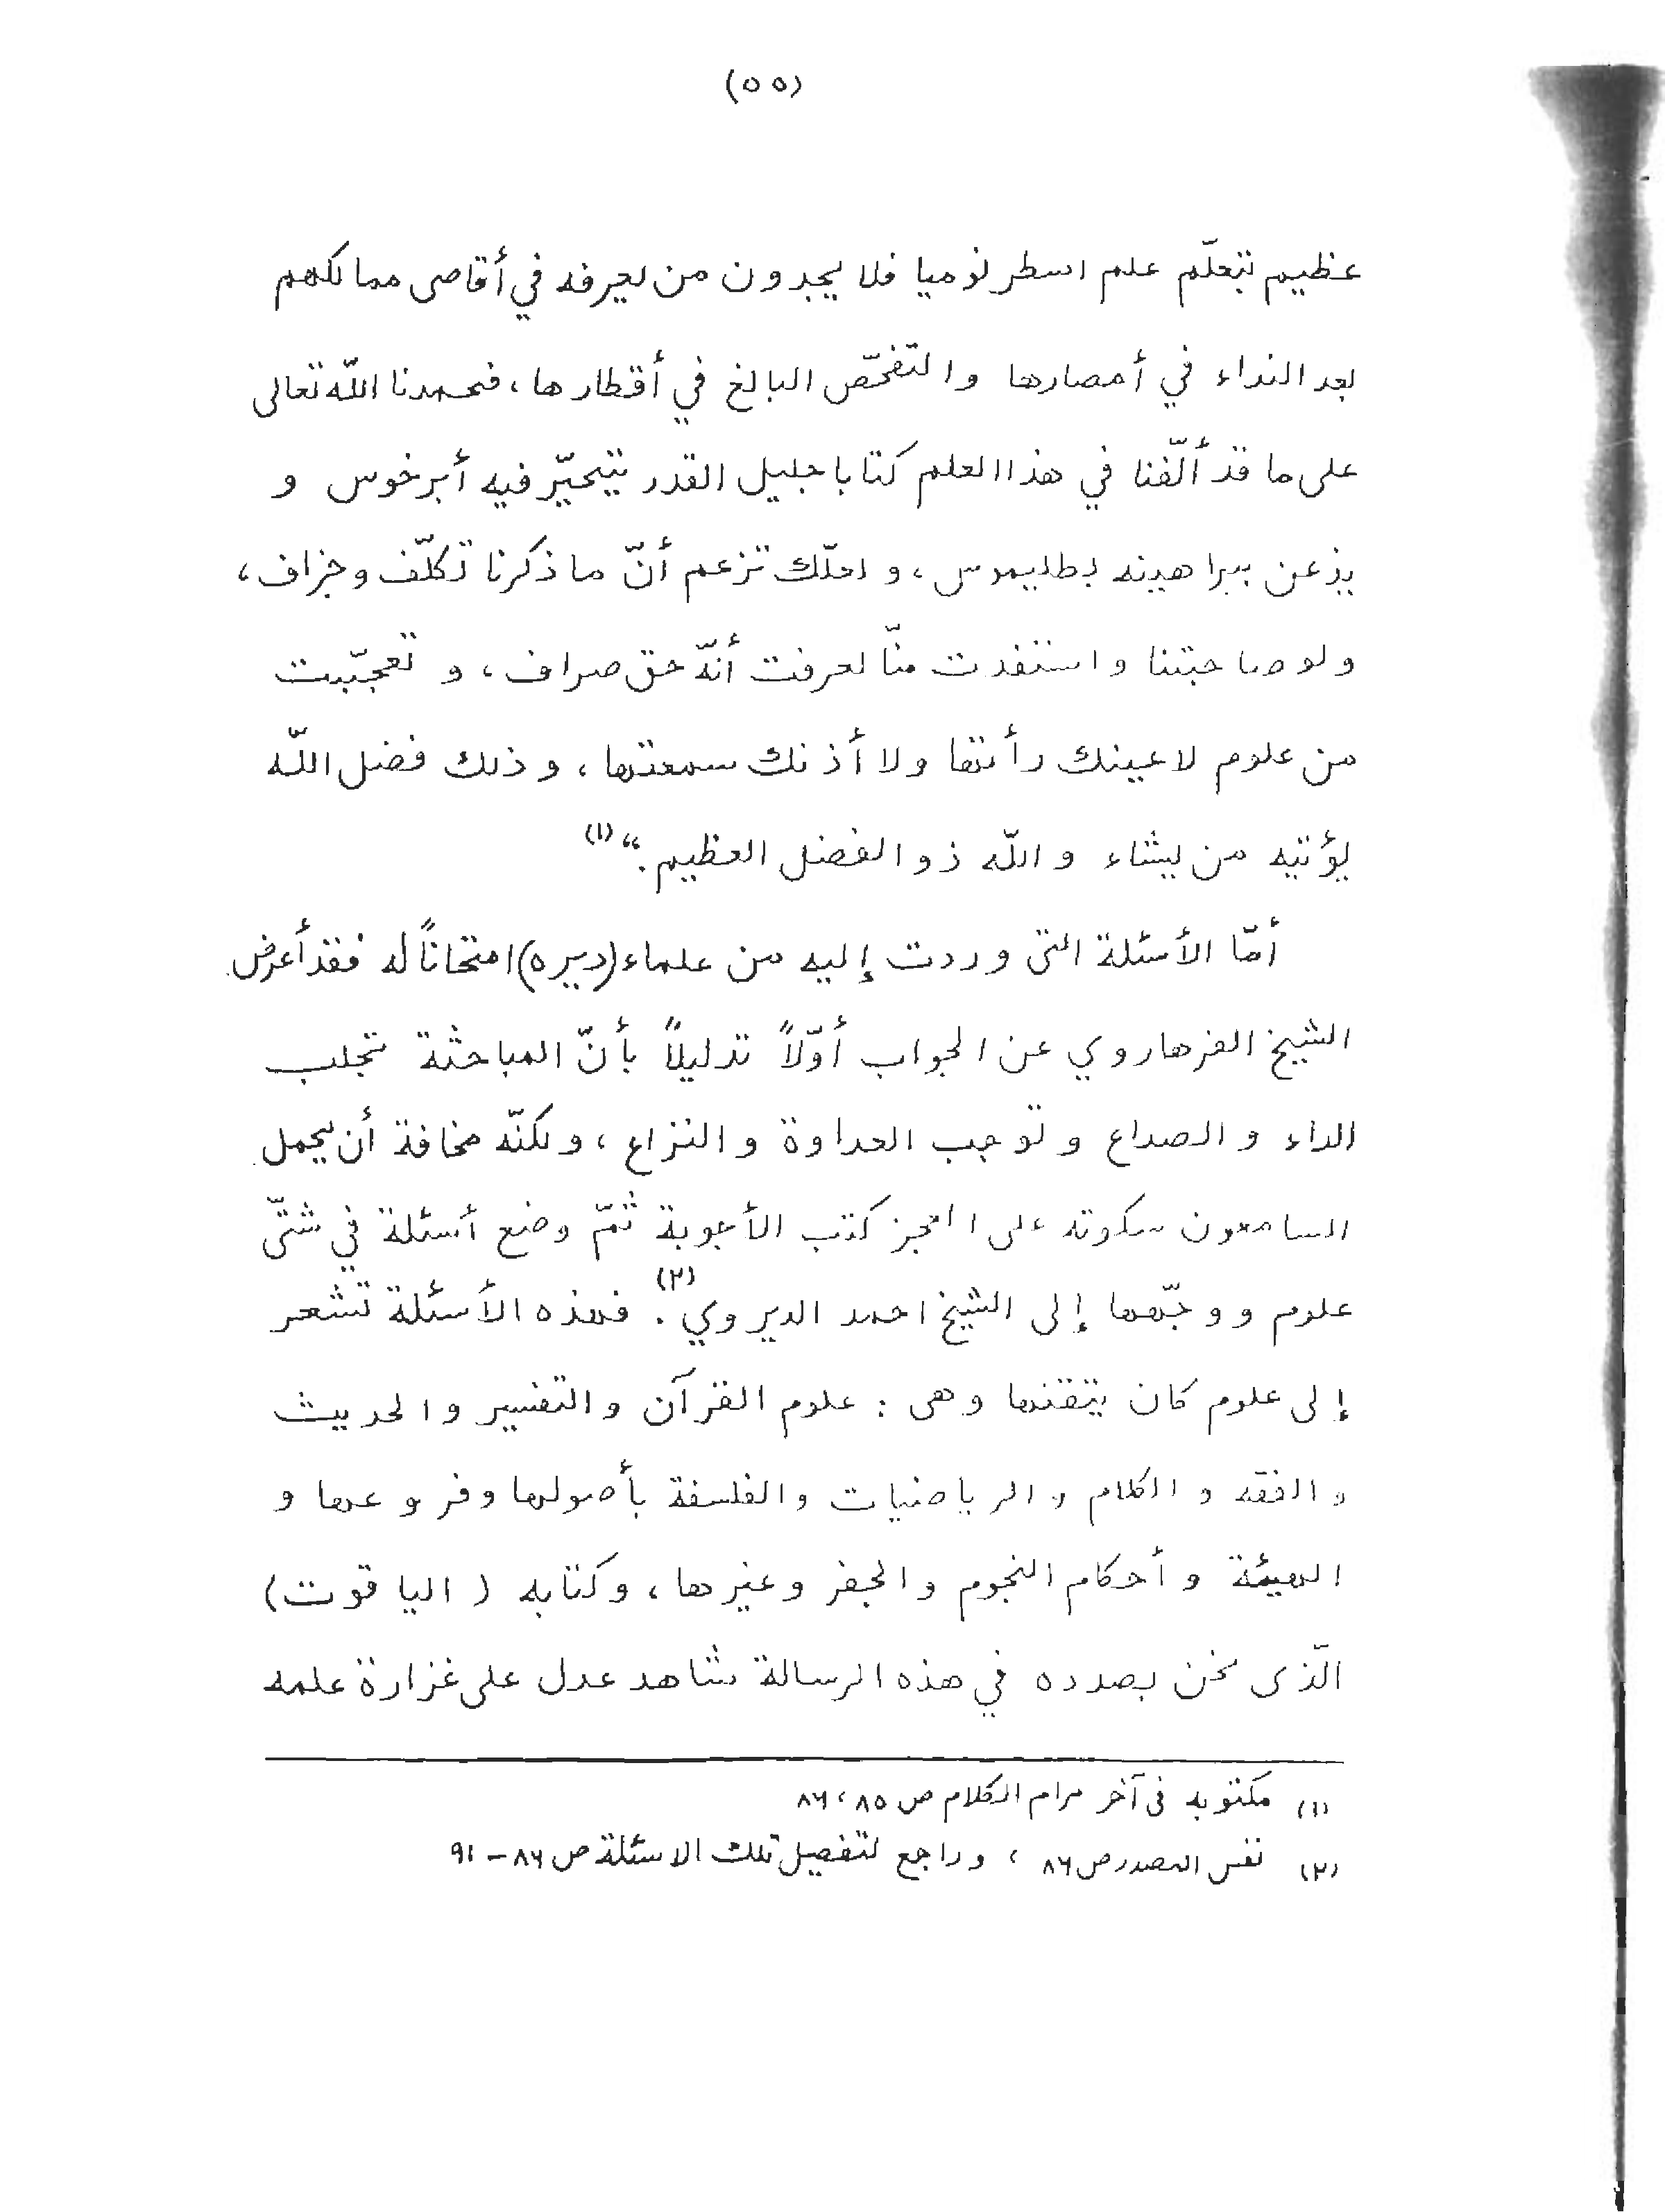 (٥٥)
عظيم بتعلّم علم اسطرنوميا فلا يجدون من يعرفه في أقاصى ممالكهم
بعد النداء في أمصارها والتفحّص البالغ في أقطارها، فحمدنا اللّه تعالى
على ما قد ألّفنا في هذا العلم كتابا جليل القدر يتحيّر فيه أبرخوس و
يذعن ببراهينه بطليموس، و لعلّك تزعم أنّ ما ذكرنا تكلّف وجزاف،
ولو صاحبتنا واستفدت منّا لعرفت أنّه حق صراف، و تعجّبت
من علوم لاعينك رأتها ولا أذنك سمعتها، وذلك فضل اللّه
يؤتيه من يشاء واللّه ذو الفضل العظيم.“ (١)
أمّا الأسئلة التى وردت إليه من علماء (ديره) امتحاناً له فقد أعرض
الشيخ الفرهاروي عن الجواب أوّلاً تدليلاً بأنّ المباحثة تجلب
الداء والصداع وتوجب العداوة والنزاع، ولكنّه مخافة أن يحمل
السامعون سكوته على العجز كتب الأجوبة ثمّ وضع أسئلة في شتّى
علوم ووجّهها إلى الشيخ احمد الديروي (٢). فهذه الأسئلة تشعر
إلى علوم كان يتقنها وهى : علوم القرآن والتفسير والحديث
والفقه والكلام والرياضيات والفلسفة بأصولها وفروعها و
الهيئة وأحكام النجوم والجفر وغيرها، وكتابه (الياقوت)
الّذى نحن بصدده في هذه الرسالة شاهد عدل على غزارة علمه
(١) مكتوبه فى آخر مرام الكلام ص ٨٥، ٨٦
(٢) نفس المصدر ص ٨٦، وراجع لتفصيل تلك الاسئلة ص ٨٦ – ٩١